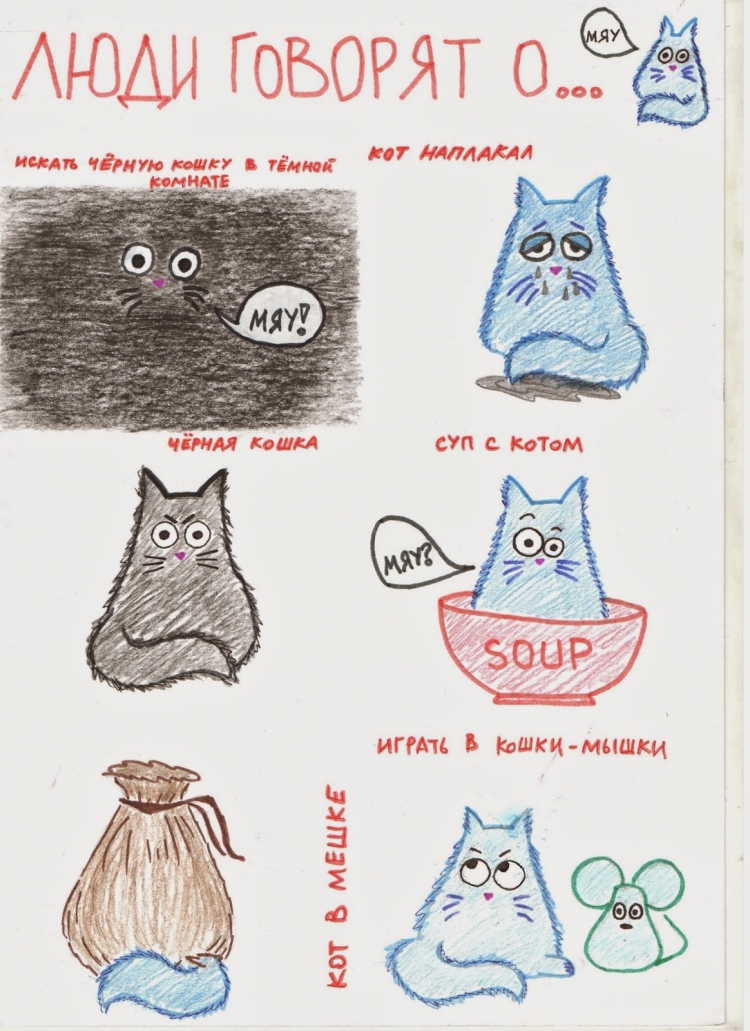 ЛЮДИ ГОВОРЯТ О...
МЯУ
ИСКАТЬ ЧЁРНУЮ КОШКУ В ТЁМНОЙ
КОМНАТЕ
МЯУ!
КОТ НАПЛАКАЛ
ЧЁРНАЯ КОШКА
СУП С КОТОМ
МЯУ?
SOUP
КОТ В МЕШКЕ
ИГРАТЬ В КОШКИ-МЫШКИ